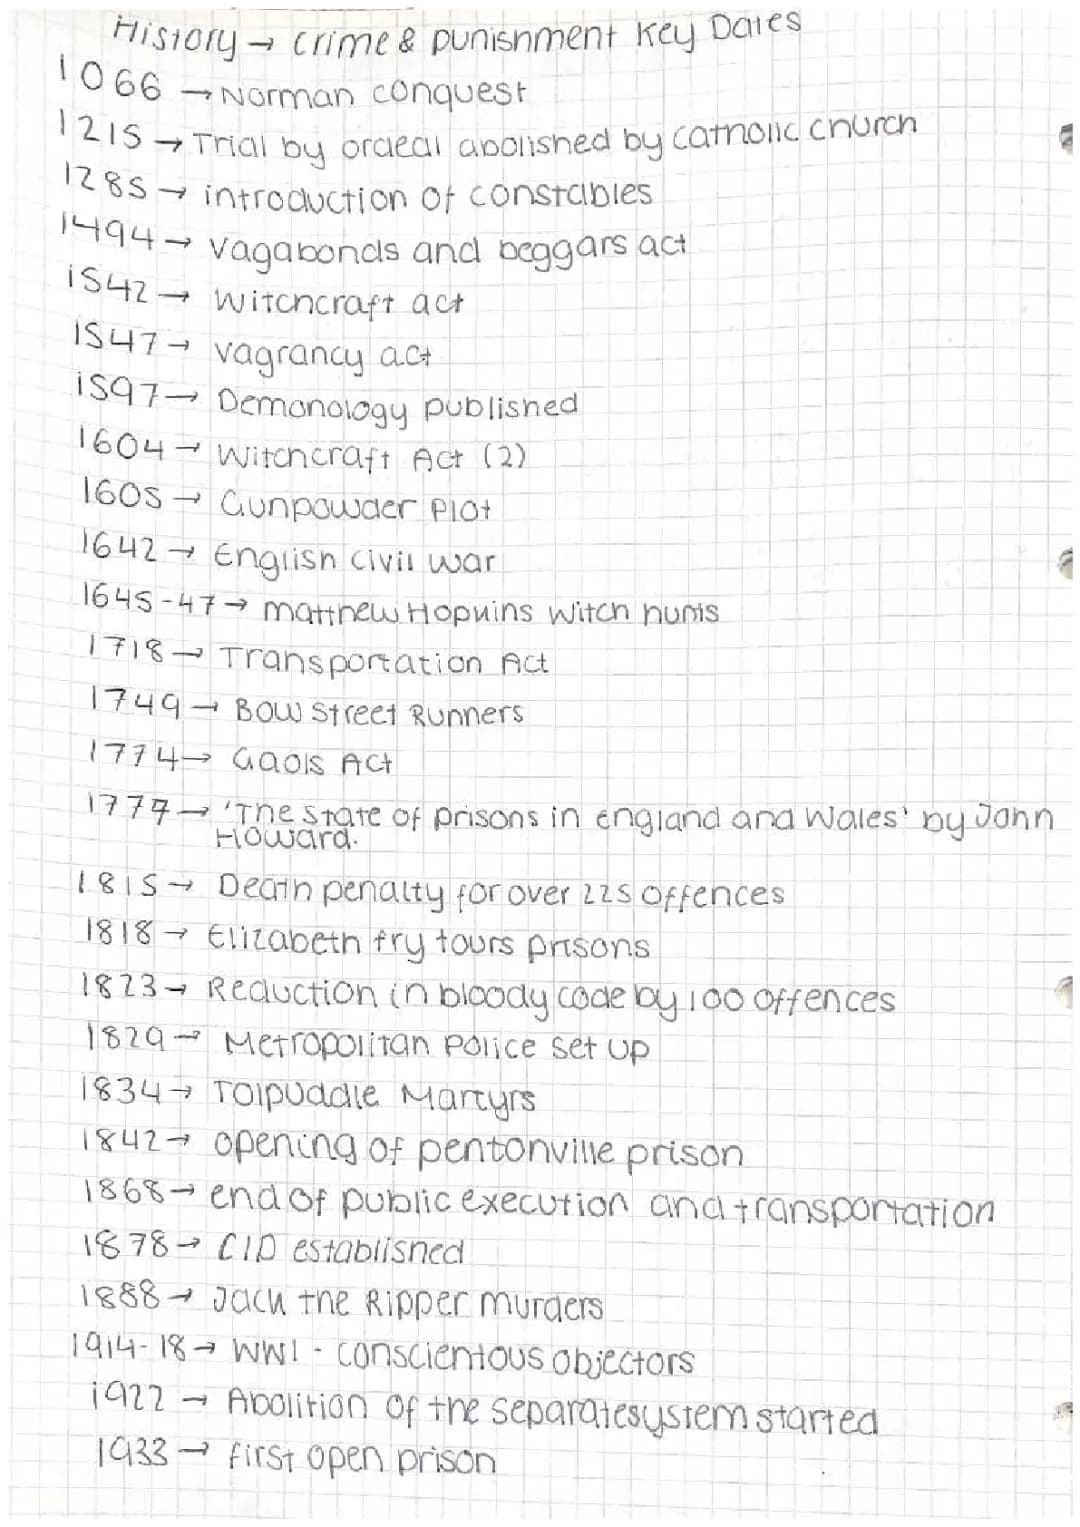 History → crime & punishment Key Dates
1066 → Norman conquest
1215 → Trial by ordeal abolished by catholic church
1285 → introduction of constables
1494 → vagabonds and beggars act
1542 → Witchcraft act
1547 → vagrancy act
1597 → Demonology published
1604 → Witchcraft Act (2)
1605 → Gunpowder Plot
1642 → English civil war
1645-47 → matthew Hopkins witch hunts
1718 → Transportation Act
1749 → Bow Street Runners
1774 → Gaols Act
1777 → 'The state of prisons in England and Wales' by John
Howard.
1815 → Death penalty for over 225 offences
1818 → Elizabeth fry tours prisons
1823 → Reduction in bloody code by 100 offences
1829 → Metropolitan police set up
1834 → Tolpuddle Martyrs
1842 → opening of pentonville prison
1868 → end of public execution and transportation
1878 → CID established
1888 → Jack the Ripper murders
1914-18 → WW1 - conscientous objectors
1922 → Abolition of the separate system started
1933 → first open prison